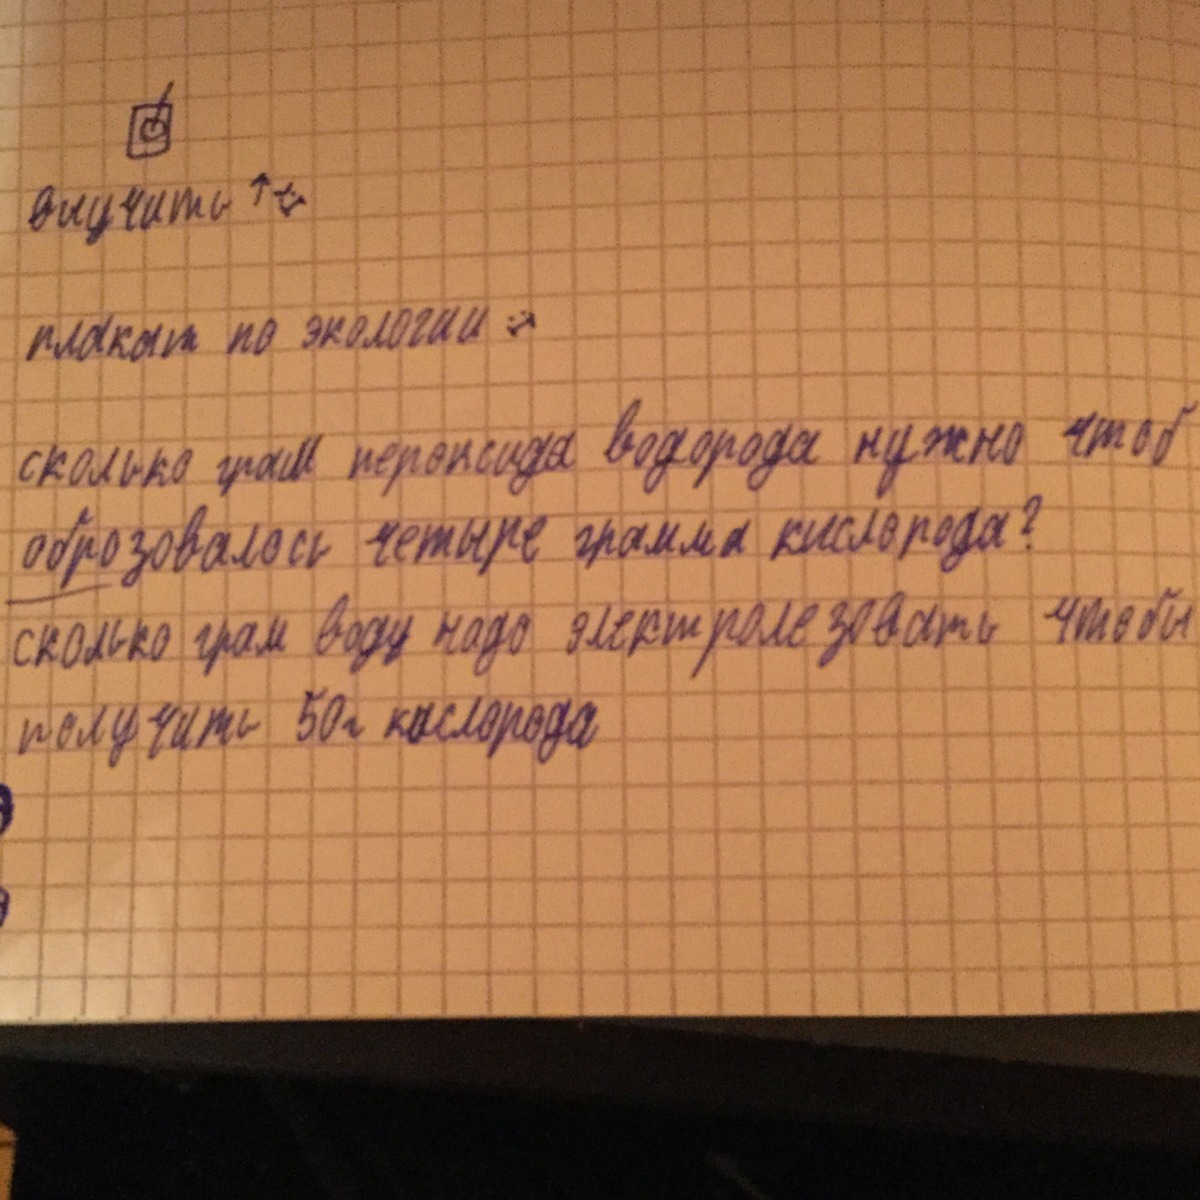 выучить ↑
плакат по экологии
сколько грам пероксида водорода нужно чтоб
оброзовалось четыре грамма кислорода?
сколько грам воду надо электролезовать чтобы
получить 50г кислорода